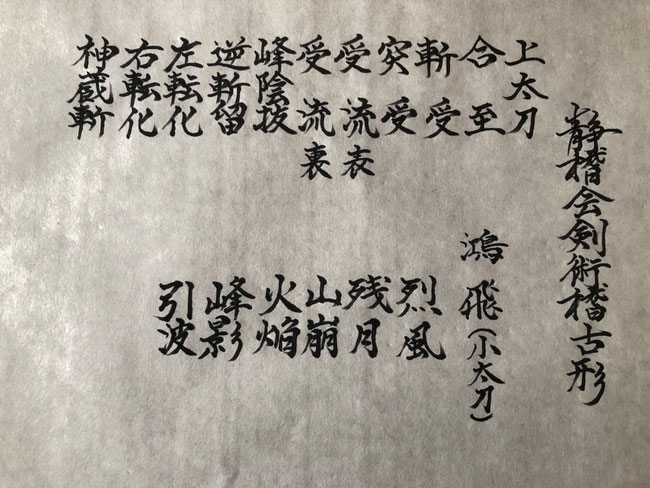 静稽会剣術稽古形
上太刀
合至
斬受
突受
受流表
受流裏
峰陰抜
逆斬留
左転化
右転化
神蔵斬
鴻飛(小太刀)
烈風
残月
山崩
火焔
峰影
引波